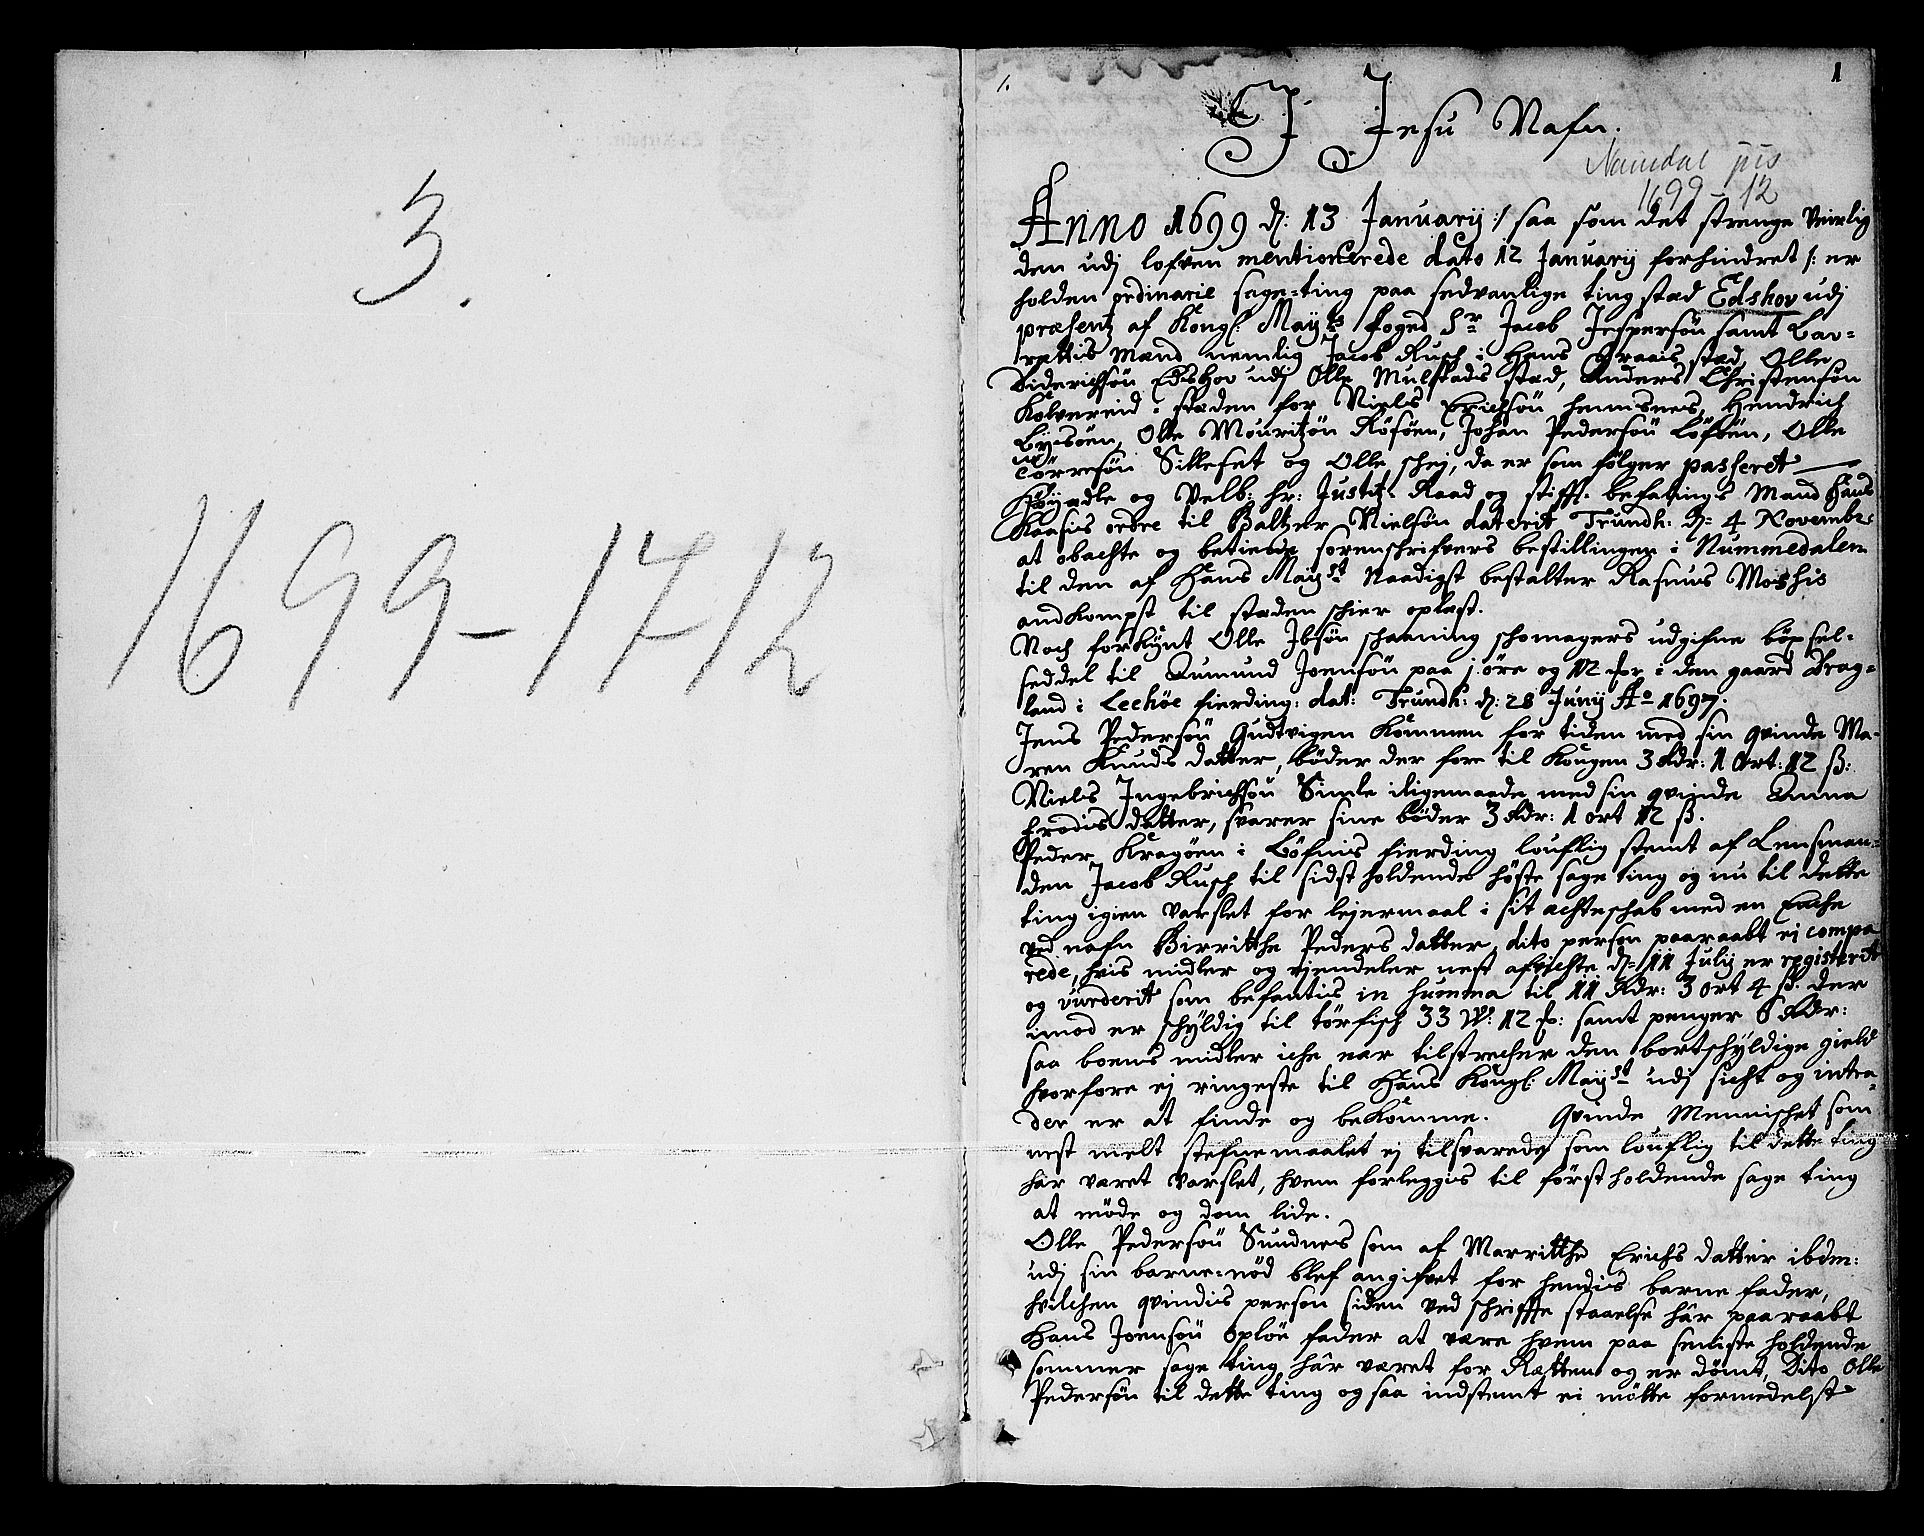 3.
1699-1712
1. 1
I Jesu Nafn.
Namdal
1699-12
Anno 1699 d: 13 Januarij :/ saa som det strenge Veirlig
den udj lofven mentionerede dato 12 Januarij forhindret /: er
holden ordinarie sage-ting paa sedvanlige ting stæd Edshov udj
præsentz af Kongl: Mayts foged Sr Jacob Jespersøn samt Lav-
rettis Mænd nemlig Jacob Rusch i Hans stæd, Olle
Diderichsøn Edshov udj Olle Mulstads stæd, Anders Christensøn
Kolvereid i stæden for Niels Erichsøn hemsnes, Hendrich
Olle Mouritzøn Rosøen, Johan Pedersøn Løføen, Olle
Torresøn Sillesset og Olle schej, da er som følger passeret
Høyædle og Velb: hr: Justitz Raad og stiffts befalings Mand Hans
Kaasis ordre til Baltzer Nielsøn daterit Trundh: d: 4 Novembr:
at obachte og betiene sorenschrifvers bestillingen i Nummedalen
til den af Hans Mayst Naadigst bestalter Rasmus Moshis
andkompst til stæden schier oplæst.
Noch forkynt Olle Ibsøn schaaning schomagers udgifne böxsel-
seddel til Amund Joensøn paa j: øre og 12 i den gaard Drag-
land i Leehöe fierding: dat: Trundh: d: 28 Junij Ao 1697.
Jens Pedersøn Gudtvigen kommen for tiden med sin qvinde Ma-
ren Knuds datter, bøder der fore til Kongen 3 Rdr: 1 ort: 12 ß:
Niels Ingebrichsøn Simle iligemaade med sin qvinde Anna
datter, svarer sine bøder 3 Rdr: 1 ort 12 ß.
Peder Kragøen i Løfnis fierding louflig stemt af Lensman-
den Jacob Rusch til sidst holdende høste sage ting og nu til dette
ting igien Varslet for leiermaal i sit echteschab med en
ved nafn Birrithe Peders datter, dito person paaraabt ej compa
rede, hvis midler og eiendeler nest afvichte d: 11 Julij er registerit
og vurderit som befantis in summa til 11 Rdr: 3 ort 4 ß. der
imod er schyldig til tørfisch 33 W: 12 samt penger 8 Rdr:
saa boens midler iche nær tilstrecher den bortschyldige gield
hvorfore ej ringeste til Hans Kongl: Mayst udj sicht og intra-
der er at finde og bekomme. Qvinde Mennischet som
nest melt stefnemaalet ej tilsvarede som louflig til dette ting
hâr været Varslet, hvem forleggis til først holdende sage ting
at møde og dom lide.
Olle Pedersøn Sundnes som af Marritthe Erichs datter ibdm:
udj sin barne-nød blef angifvet for hendis barne fader,
hvilchen qvindis person siden ved schriffte staaelse hâr paaraabt
Hans Joensøn Oplöe fader at være hvem paa seniste holdende
sommer sage ting hâr været for Retten og er dømt, Dito Olle
Pedersøn til dette ting ogsaa indstemt ei mötte formedelst